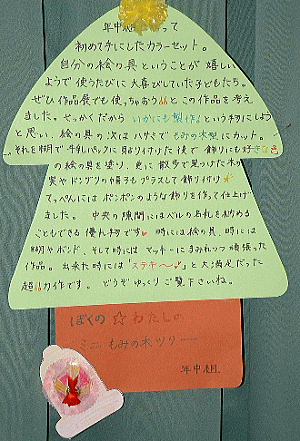 年中組になって
初めて手にしたカラーセット。
自分の絵の具ということが嬉しい
ようで使うたびに大喜びしていた子どもたち。
ぜひ作品展でも使っちゃおう!!とこの作品を考え
ました。せっかくだからいかにも製作!という物にしよう
と思い、絵の具の次はハサミでもみの木型にカット。
それを糊で牛乳パックに貼り付けた後で飾りにも好きな色
の絵の具を塗り、更に散歩で見つけた木の
実やドングリの帽子もプラスして飾り付け☆
てっぺんにはポンポンのような飾りを作って仕上げ
ました。中央の隙間にはベルのお礼を納める
こともできる優れ物です♥時には絵の具、時には
糊やボンド、そして時にはマッキーにまみれつつ頑張った
作品。出来た時には「ステキ〜♪」と大満足だった
超力作です。どうぞゆっくりご覧下さいね。
ぼくの☆わたしの
ミニもみの木ツリー
年中組